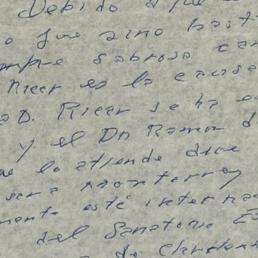 Debido a que
o fue sino hast
mpre sabrosa car
Ricar es la causa
D. Ricar se ha e
y el Dr Ramon d
e lo atiende dice
sera monterrey
mente esté interna
del Sanatorio Es
de Christus